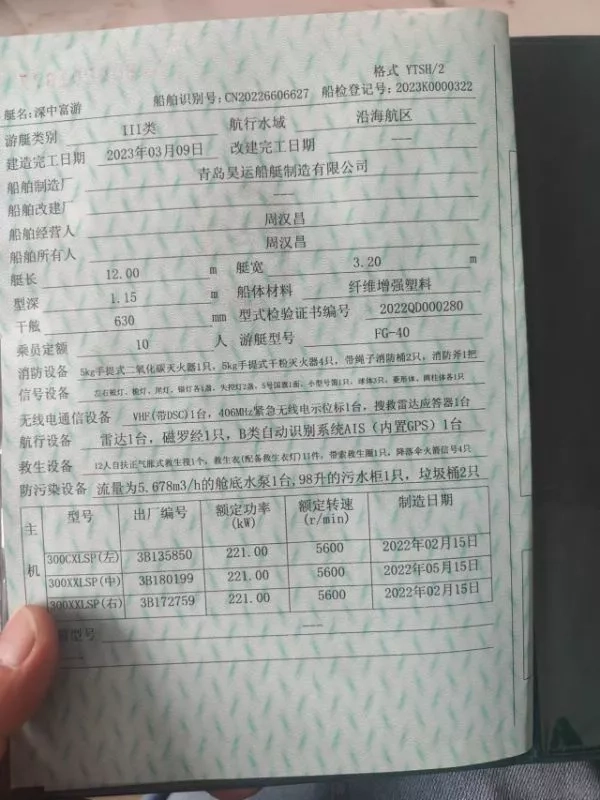 格式 YTSH/2
艇名:深中富游 船舶识别号:CN20226606627 船检登记号:2023K0000322
游艇类别 III类 航行水域 沿海航区
建造完工日期 2023年03月09日 改建完工日期 ——
船舶制造厂 青岛昊运船艇制造有限公司
船舶改建厂 ——
船舶经营人 周汉昌
船舶所有人 周汉昌
艇长 12.00 m 艇宽 3.20 m
型深 1.15 m 船体材料 纤维增强塑料
干舷 630 mm 型式检验证书编号 2022QD000280
乘员定额 10 人 游艇型号 FG-40
消防设备 5kg手提式二氧化碳灭火器1只，5kg手提式干粉灭火器4只，带绳子消防桶2只，消防斧1把
信号设备 左右舷灯、桅灯、尾灯、锚灯各1盏，失控灯2盏，5号国旗1面，小型号笛1只，球体3只，菱形体、圆柱体各1只
无线电通信设备 VHF(带DSC)1台，406MHz紧急无线电示位标1台，搜救雷达应答器1台
航行设备 雷达1台，磁罗经1只，B类自动识别系统AIS（内置GPS）1台
救生设备 12人自扶正气胀式救生筏1个，救生衣(配备救生衣灯)11件，带索救生圈1只，降落伞火箭信号4只
防污染设备 流量为5.678m3/h的舱底水泵1台,98升的污水柜1只，垃圾桶2只
主机 型号 出厂编号 额定功率(kW) 额定转速(r/min) 制造日期
300CXLSP(左) 3B135850 221.00 5600 2022年02月15日
300XXLSP(中) 3B180199 221.00 5600 2022年05月15日
300XXLSP(右) 3B172759 221.00 5600 2022年02月15日
型号 ——